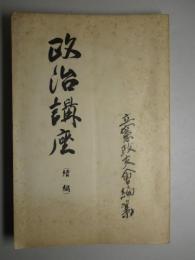 政治講座
續編
立憲政友會編纂